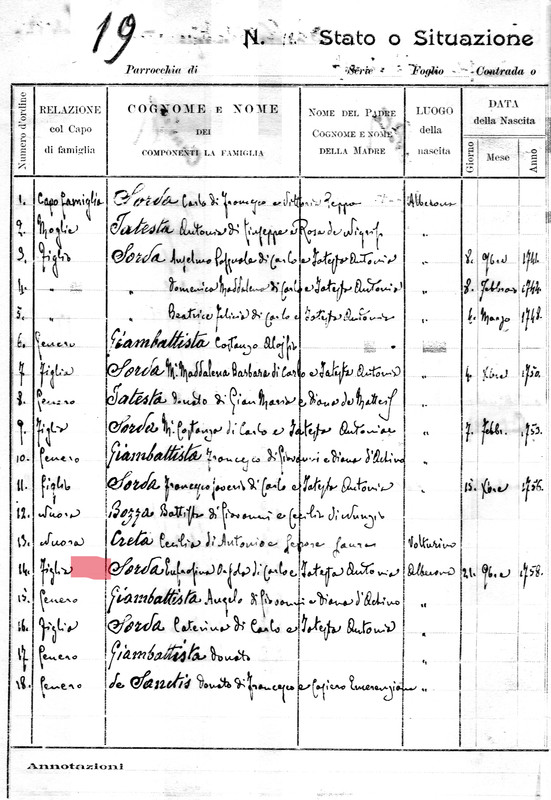 19
N. Stato o Situazione
Parrocchia di Serie Foglio Contrada o
Numero d'ordine RELAZIONE col Capo di famiglia COGNOME E NOME DEI COMPONENTI LA FAMIGLIA NOME DEL PADRE COGNOME E NOME DELLA MADRE LUOGO della nascita DATA della Nascita Giorno Mese Anno
1. Capo famiglia Sorda Carlo di Francesco e Vittoria Zeppa Alberona
2. Moglie Tatesta Antonia di Giuseppe e Rosa de Nigris "
3. Figlio Sorda Anselmo Pasquale di Carlo e Tatesta Antonia " 8. 9bre 1741.
4. " " Domenica Maddalena di Carlo e Tatesta Antonia " 8. Febbraio 1744.
5. " Beatrice Felicia di Carlo e Tatesta Antonia " 6. Marzo 1748.
6. Genero Giambattista Costanzo Aloisio "
7. Figlia Sorda M. Maddalena Barbara di Carlo e Tatesta Antonia " 4. Xbre 1750.
8. Genero Tatesta Donato di Gian Maria e Diana de Matteis "
9. Figlia Sorda M. Costanza di Carlo e Tatesta Antonia " 7. Febbr. 1753.
10. Genero Giambattista Francesco di Giovanni e Diana d'Achino "
11. Figlio Sorda Francesco di Carlo e Tatesta Antonia " 15. Xbre 1756.
12. Nuora Bozza Battista di Giovanni e Cecilia di Nunzio "
13. Nuora Creta Cecilia di Antonio e Laura Volturino
14. Figlia Sorda Eufrosina Orsola di Carlo e Tatesta Antonia Alberona 21. 9bre 1758.
15. Genero Giambattista Angelo di Giovanni e Diana d'Achino "
16. Figlia Sorda Caterina di Carlo e Tatesta Antonia "
17. Genero Giambattista Donato "
18. Genero de Sanctis Donato di Francesco e Emerenziana "
Annotazioni